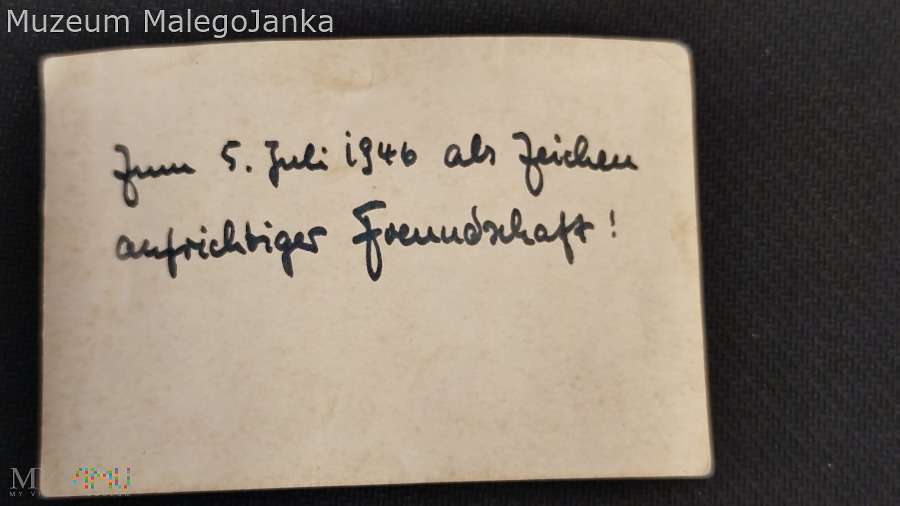 Muzeum MalegoJanka
Zum 5. Juli 1946 als Zeichen
aufrichtiger Freundschaft!